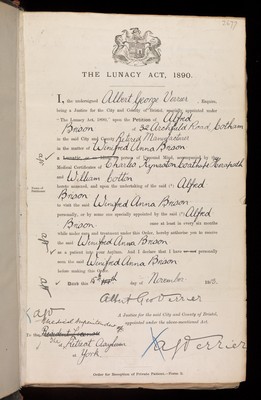 THE LUNACY ACT, 1890.
I, the undersigned Albert George Verrier, Esquire,
being a Justice for the City and County of Bristol, specially appointed under
"The Lunacy Act, 1890," upon the Petition of Alfred
Braon of 32 Archfield Road, Cotham
in the said City and County Retired Manufacturer
in the matter of Winifred Anna Braon
a Lunatic person of Unsound Mind, accompanied by the
Medical Certificates of Charles
and William Cotton
hereto annexed, and upon the undertaking of the said Alfred
Braon
to visit the said Winifred Anna Braon
personally, or by some one specially appointed by the said Alfred
Braon once at least in every six months
while under care and treatment under this Order, hereby authorise you to receive
the said Winifred Anna Braon
as a patient into your Asylum. And I declare that I have personally
seen the said Winifred Anna Braon
before making this Order.
Dated this day of November
Albert Geo Verrier
A Justice for the said City and County of Bristol,
appointed under the above-mentioned Act.
To the
Medical Superintendent of
Retreat Asylum
York
Order for Reception of Private Patient—Form 3.